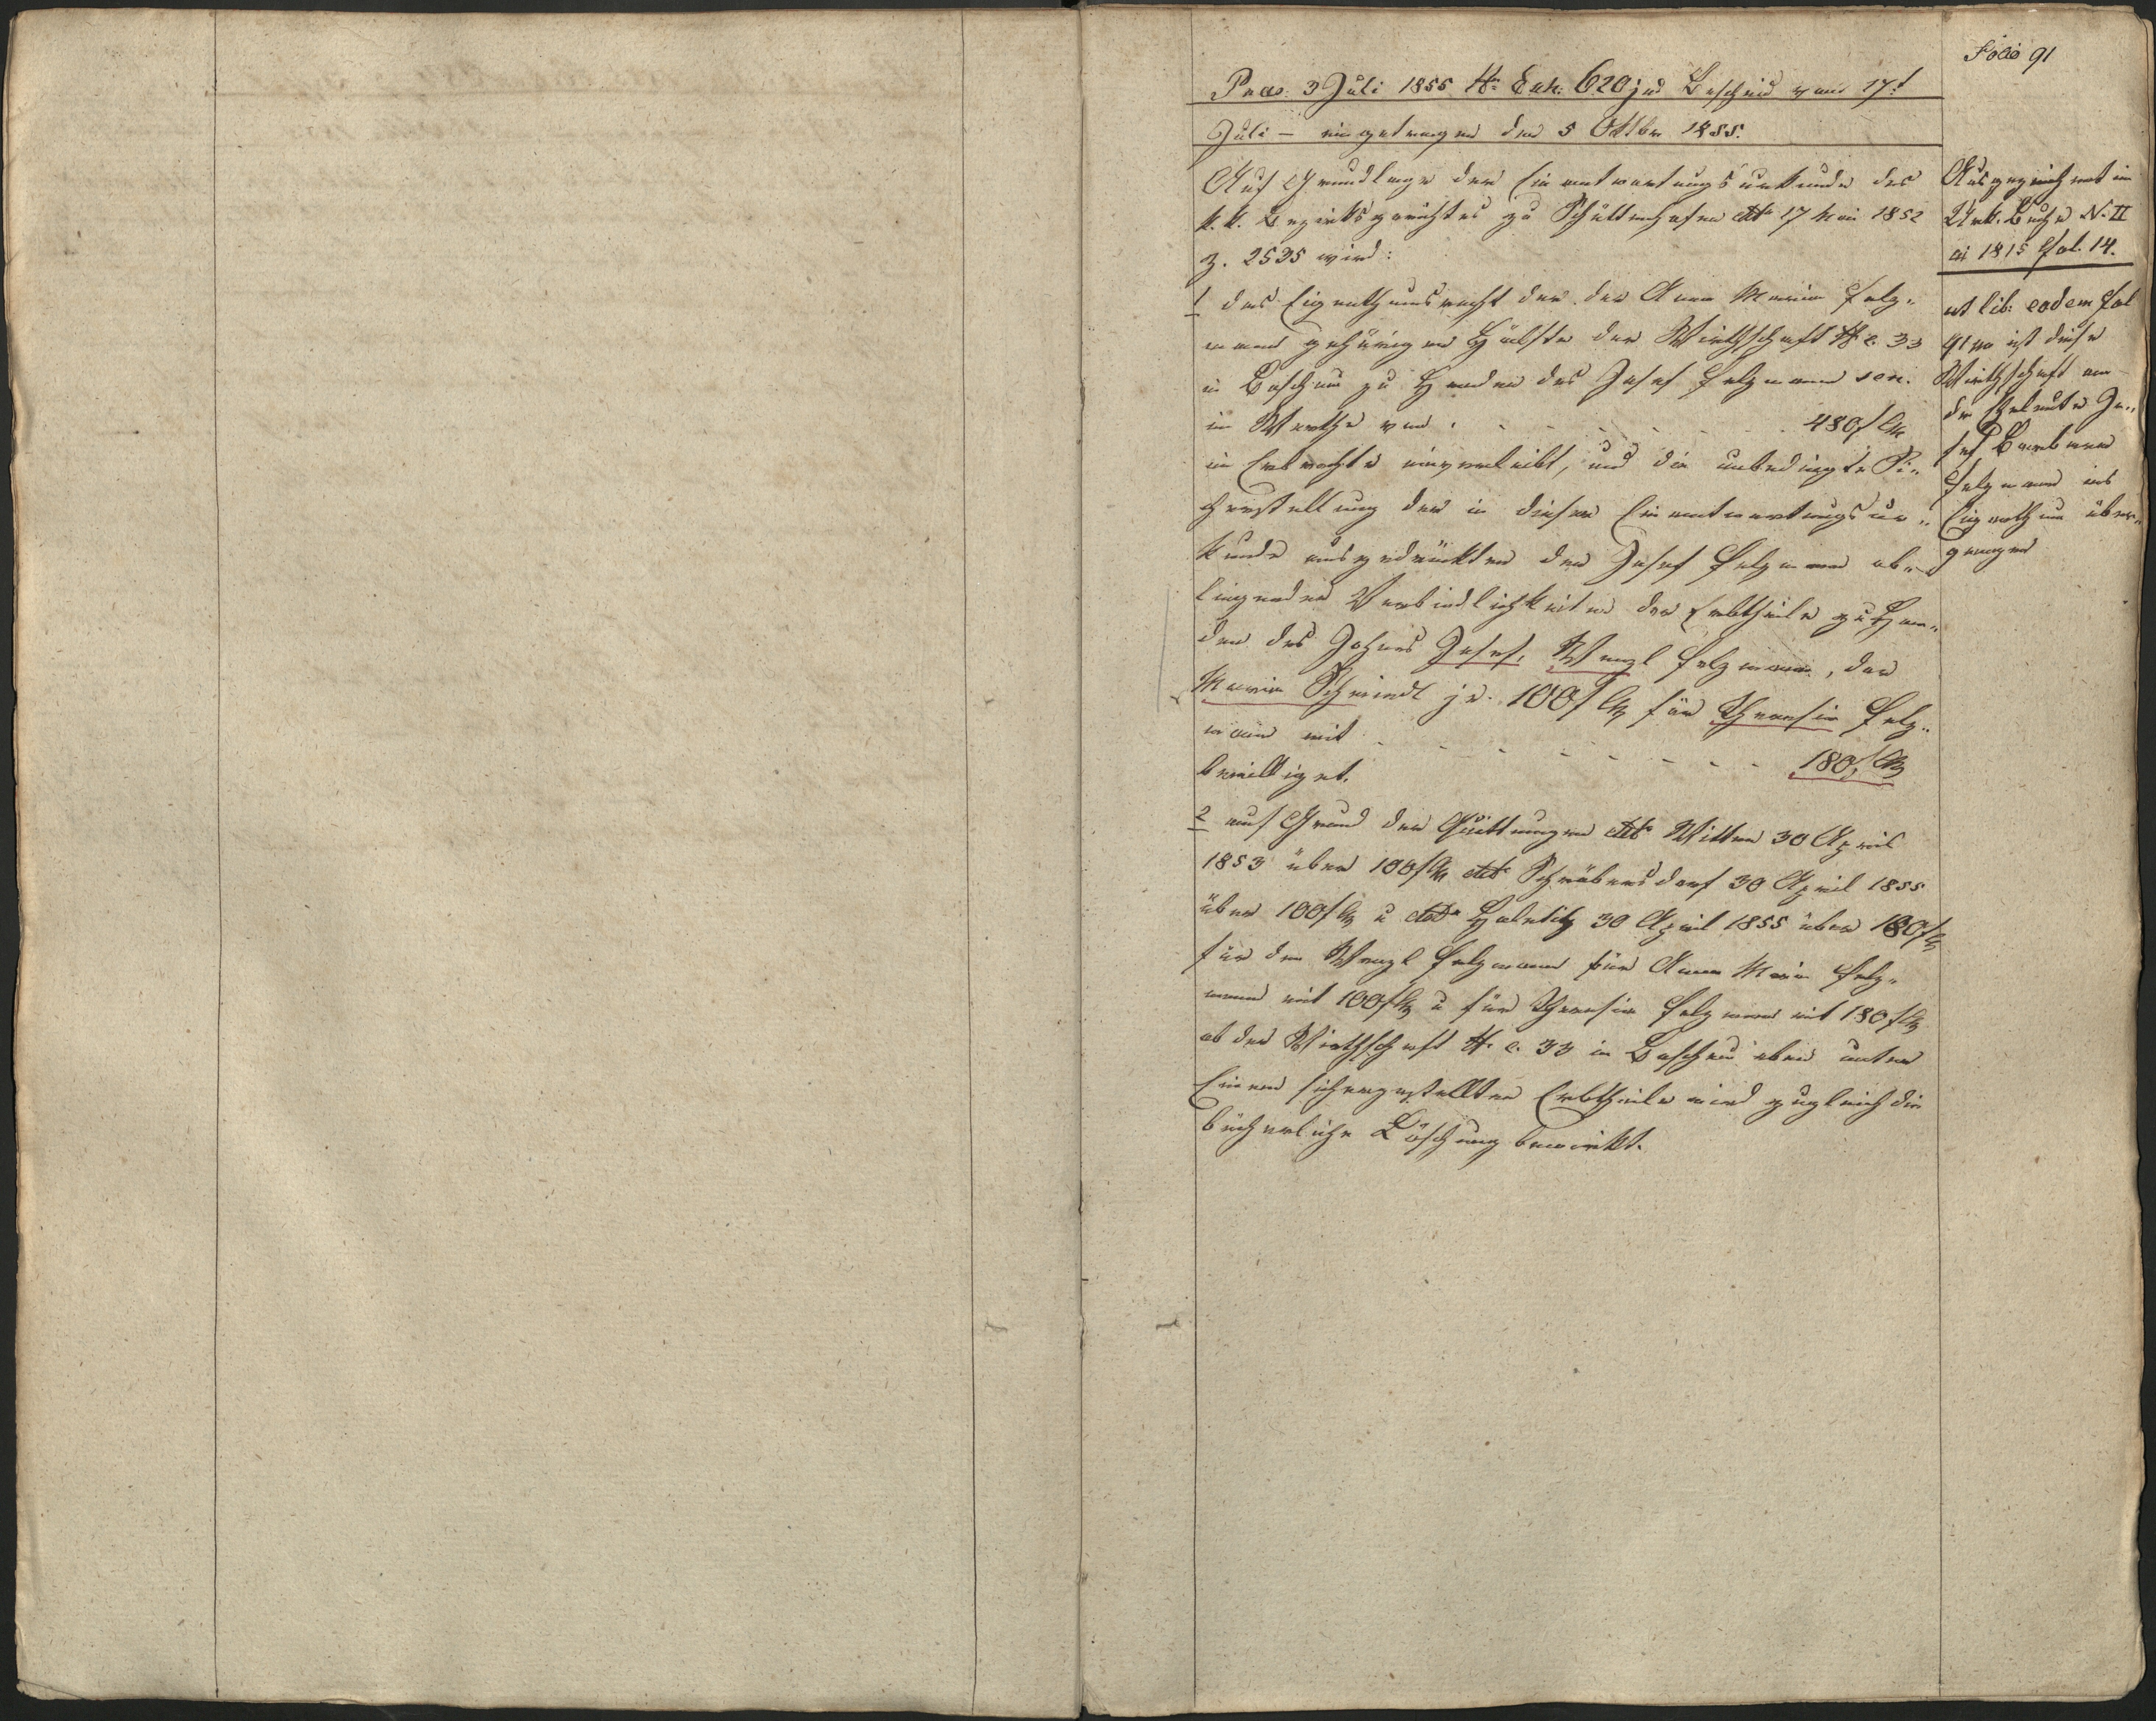 Folio 91
Praes. 3 Juli 1855 N. Exh. 620 jud Bescheid vom 17t
Juli – eingetragen den 5 Oktber 1855.
Auf Grundlage der Einantwortungsurkunde des
k. k. Bezirksgerichtes zu Schüttenhofen ddto 17 Mai 1852
Z. 2535 wird:
1 das Eigenthumsrecht der der Anna Maria Felz„
mann gehörigen Hälfte der Wirthschaft N. C. 33
in zu Handen des Josef Felzmann sen.
im Werthe von . - - - - - - 480 f CM
im Erbrechte einverleibt, und die unbedingte Si„
cherstellung der in dieser Einantwortungsur„
kunde ausgedrückten dem Josef Felzmann ob„
liegenden Verbindlichkeiten der Erbtheile zu Han„
den des Sohnes Josef, Wenzl Felzmann, der
Maria je. 100 f CM für Theresia Felz„
mann mit - - - - - - - - 180 f CM
bewilliget.
2 auf Grund der Quittungen ddto 30 April
1853 über 100 f CM ddto 30 April 1855
über 100 f CM u ddto 30 April 1855 über 180 f CM
für den Wenzl Felzmann für Anna Maria Felz„
mann mit 100 f CM u für Theresia Felzmann mit 180 f CM
ob der Wirthschaft N. C. 33 in eben unter
Einem sichergestellten Erbtheile wird zugleich die
bücherliche Löschung bewirkt.
Ausgezeichnet im
Urk. Buche N. II
ai 1815 Fol. 14.
ut lib: eodem Fol
91 ist diese
Wirthschaft an
die Eheleute Jo„
sef Barbara
Felzmann ins
Eigenthum über„
gangen